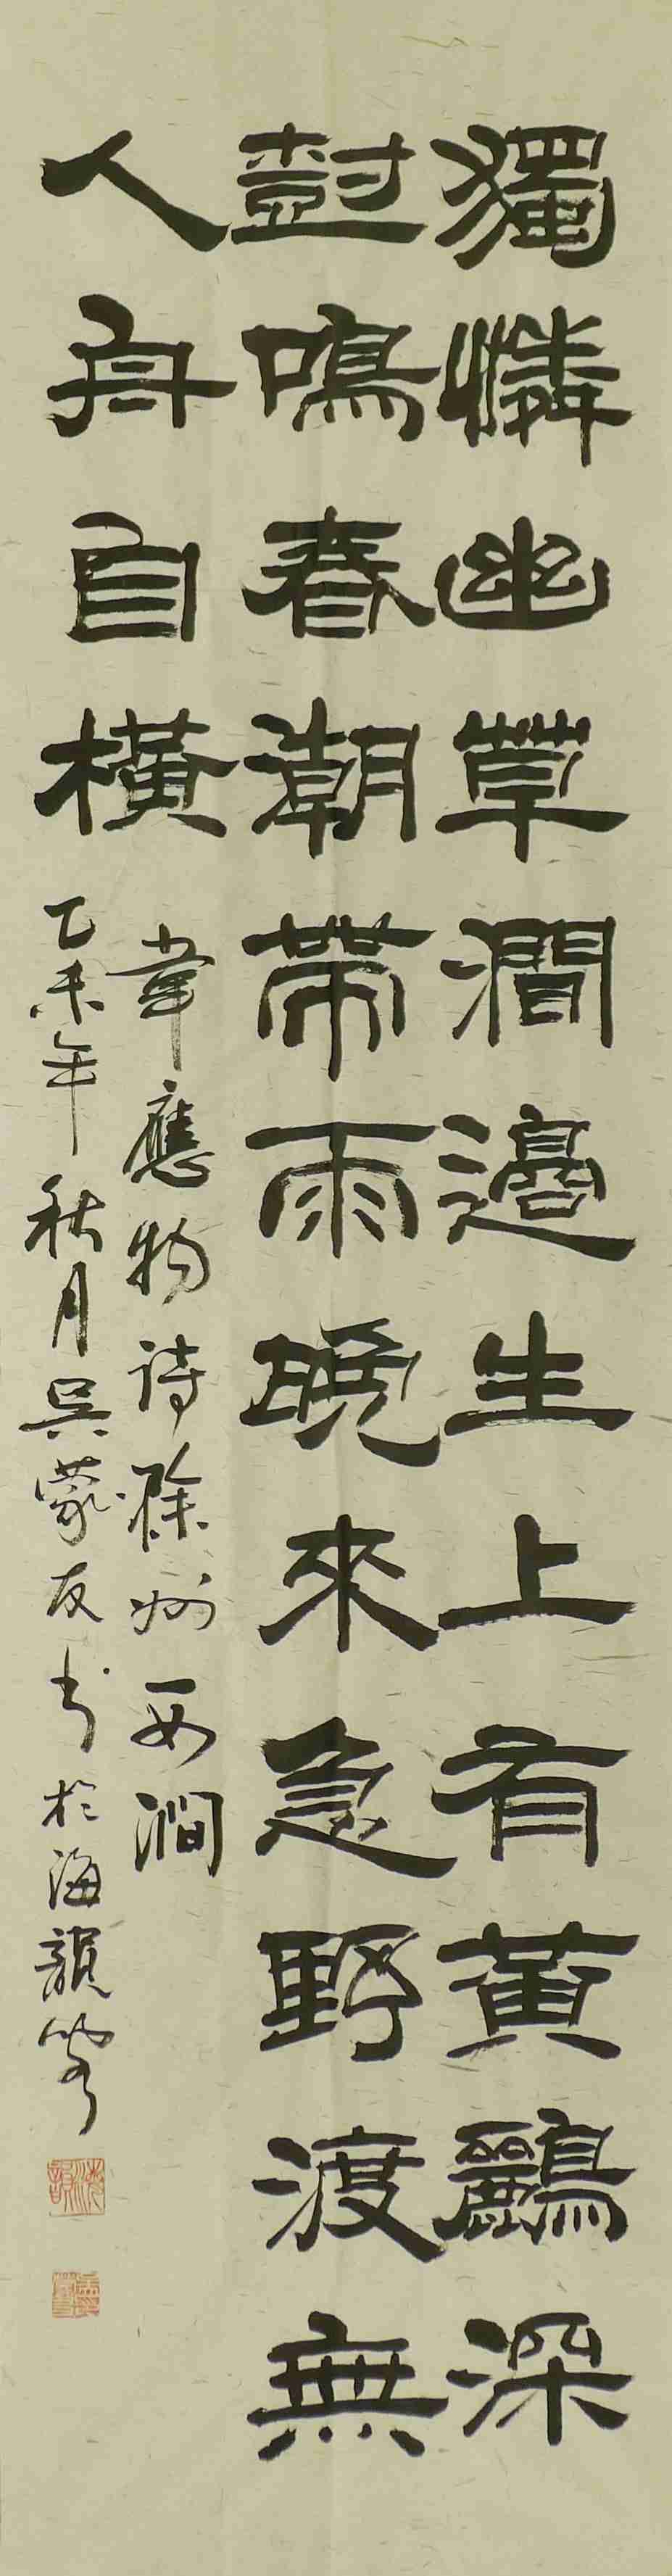 獨憐幽草澗邉生上有黃鸝深
尌鳴春潮帶雨晚來急野渡無
人舟自橫
韋應物詩滁州西澗
乙未年秋月吳蒙友书於海韻